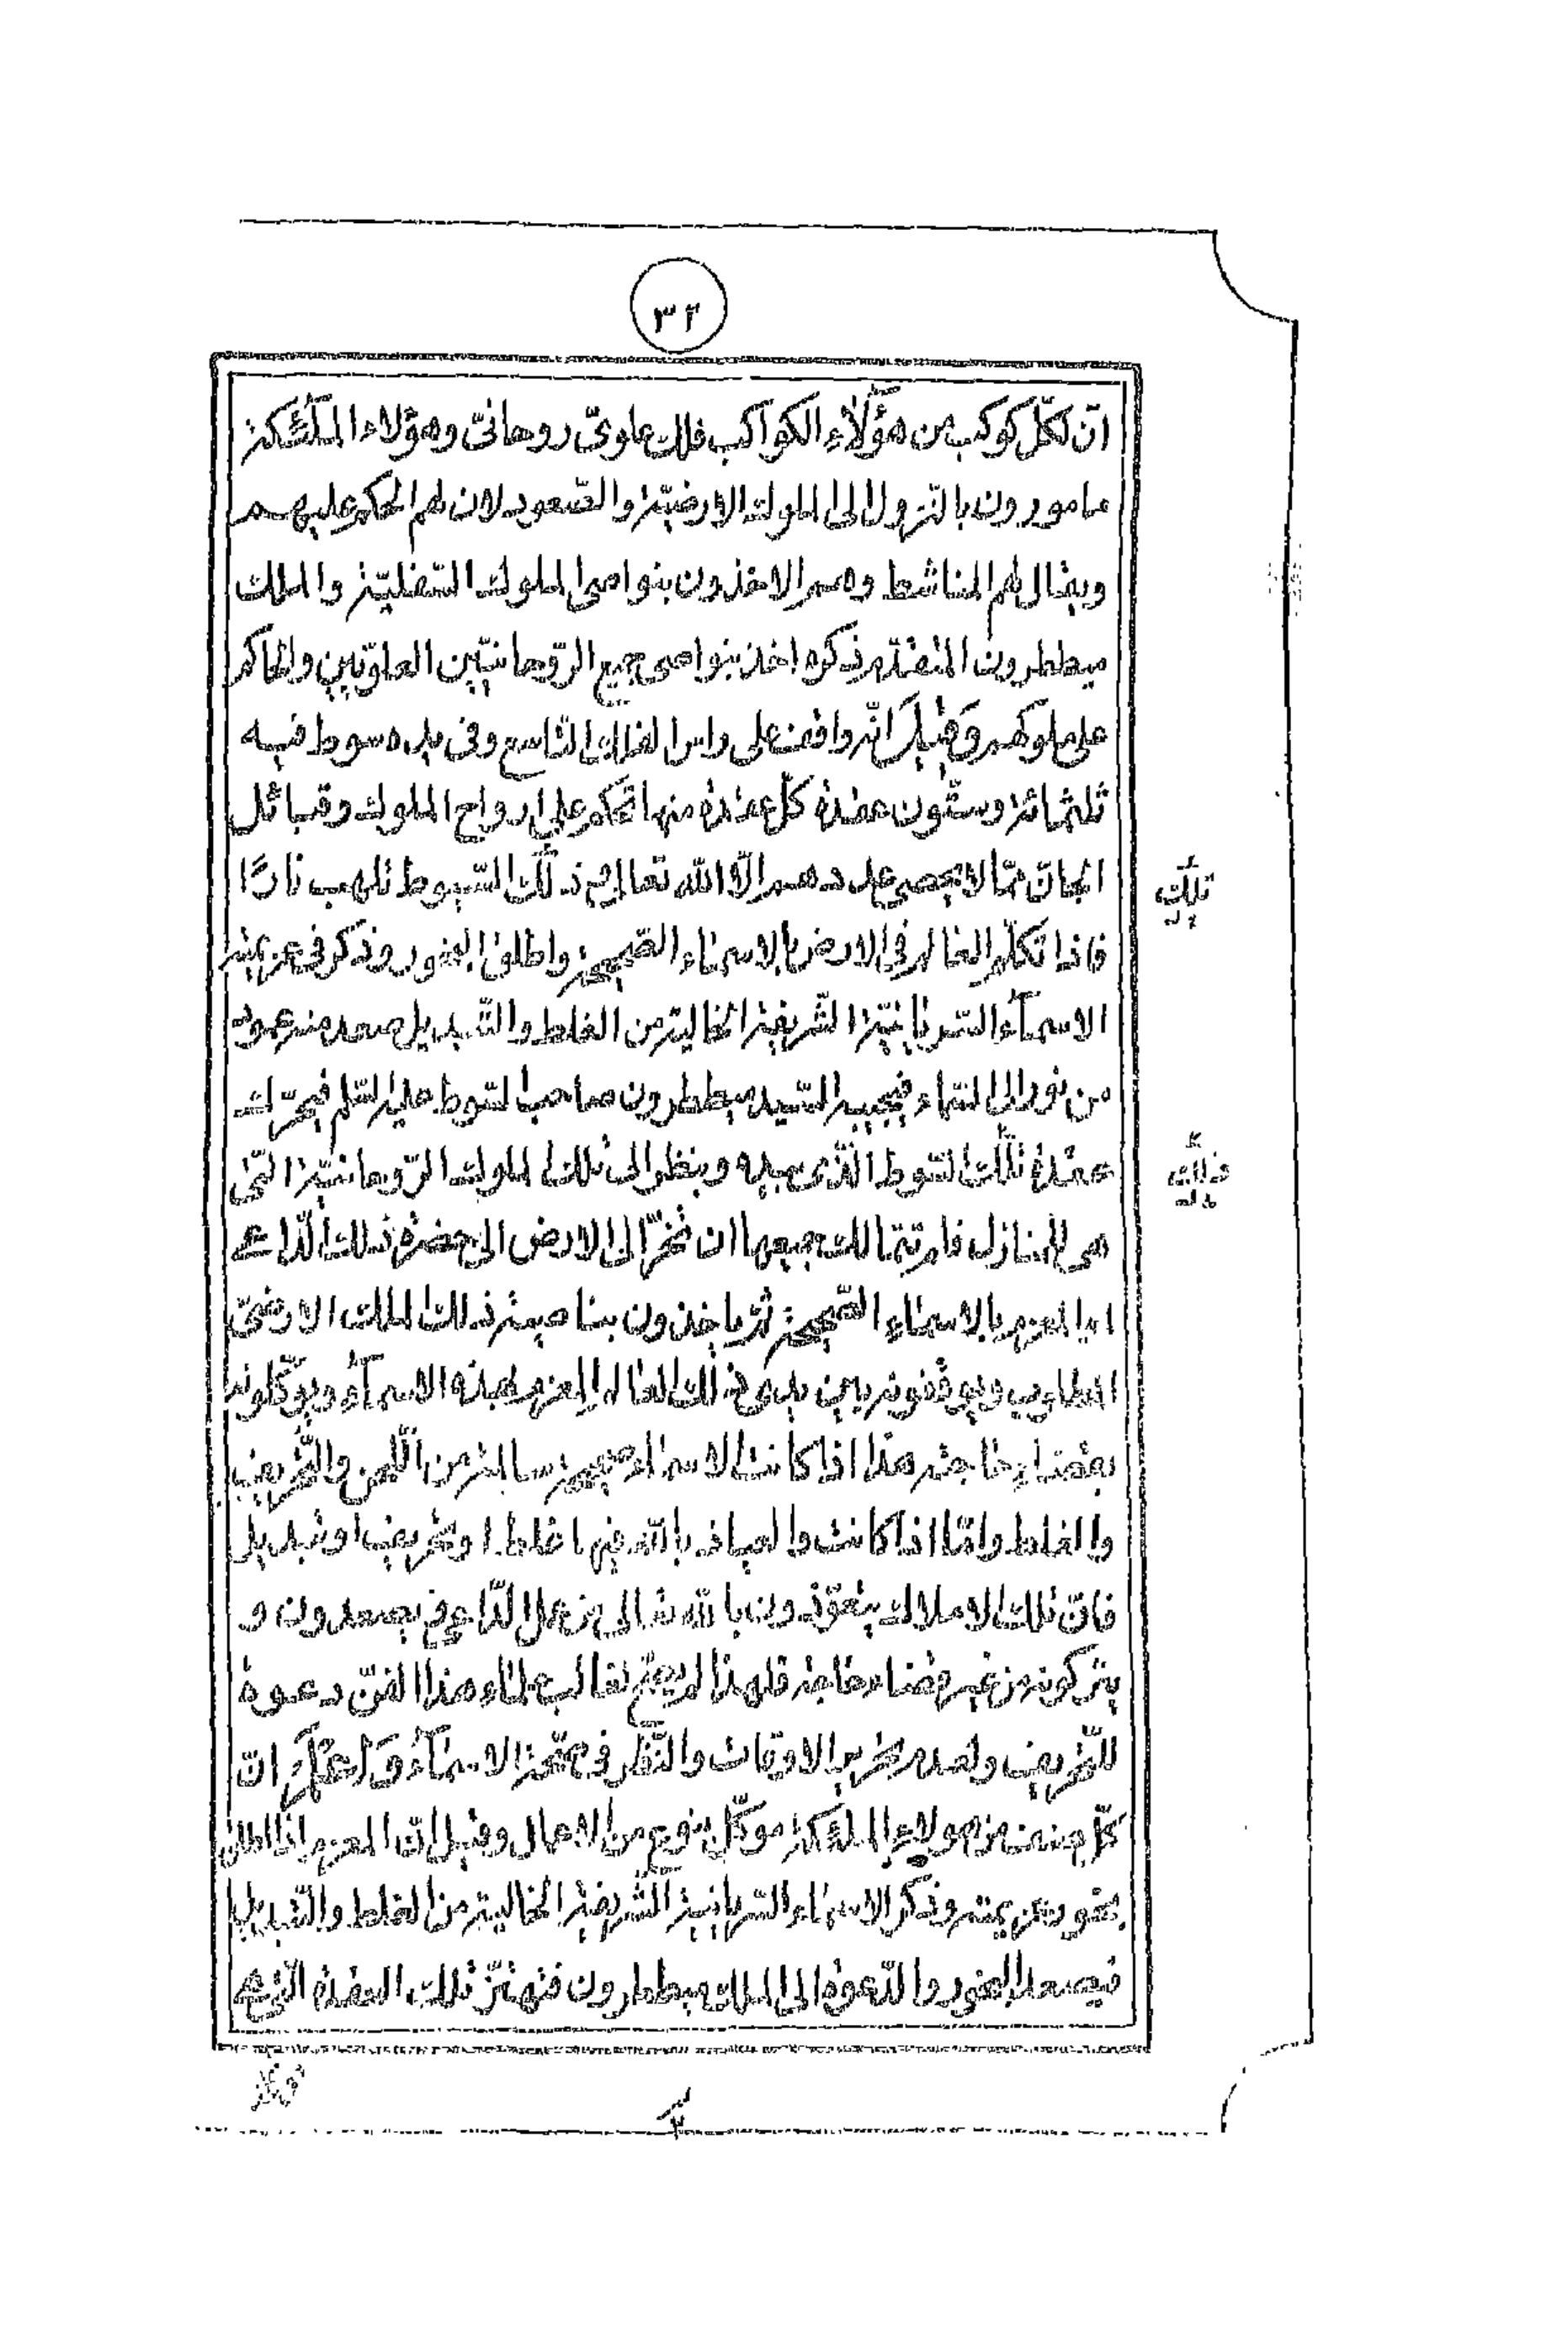 ٣٢
انّ لكلّ كوكب من هؤلاء الكواكب فلك علويّ روحانىّ وهؤلاء الملئكة
مامورون بالنّزول الى الملوك الارضيّة والصّعود لان لهم الحكم عليهم
ويقال لهم المناشط وهم الاخذون بنواصى الملوك السّفليّة والملك
ميططرون المتقدّم ذكره اخذ بنواصى جميع الرّوحانيّين العلويّين والحاكم
على ملوكهم وقيل انّه واقف على راس الفلك التّاسع وفى يده سوط فيه
ثلثمائة وستّون عقدة كلّ عقدة منها تحكم على ارواح الملوك وقبائل
الجانّ ممّا لا يحصى عددهم الّا الله تعالى ذلك السّوط تلهب نارًا
تلك
فاذا تكلّم العالم فى الارض بالاسماء الصّحيحة واطلق البخور وذكر فى عزيمته
الاسمآء السّريانيّة الشّريفة الخالية من الغلط والتّبديل صعد منه عمود
من نور الى السّماء فيجيبه السّيد ميططرون صاحب السّوط عليه السّلم فيحرّك
عقدة تلك السّوط الّذى بيده وينظر الى تلك الملوك الرّوحانيّة الّتى
ذلك
هى المنازل فامرتهم الك جميعها ان تخرّ الى الارض الى حضرة ذلك الدّاعى
المعزم بالاسماء الصّحيحة ثمّ ياخذون بناصية ذلك الملك الارضىّ
المطلوب ويوقفونه بين يدى ذلك العالم المعزم بهذه الاسمآء ويوكّلونه
بقضاء حاجته هذا اذا كانت الاسماء صحيحة سالمة من اللّحن والتّحريف
والغلط وامّا اذا كانت والعياذ بالله فيها غلط او تحريف او تبديل
فانّ تلك الاملاك يتعوّذون بالله تعالى من عمل الدّاعى ويصعدون و
يتركونه من غير قضاء حاجته فلهذا لم يصحّ لغالب علماء هذا الفنّ دعوة
للتّحريف ولعدم تحرير الاوقات والنّظر فى صحّة الاسمآء واعلم انّ
كلّ صنف من هولاء الملئكة موكّل بنوع من الاعمال وقيل انّ المعزم اذا اطلق
بخور عزيمته وذكر الاسماء السّريانيّة الشّريفة الخالية من الغلط والتّبديل
فيصعد البخور والدّعوة الى الملك ميططرون فتهتزّ تلك العقدة الّتى